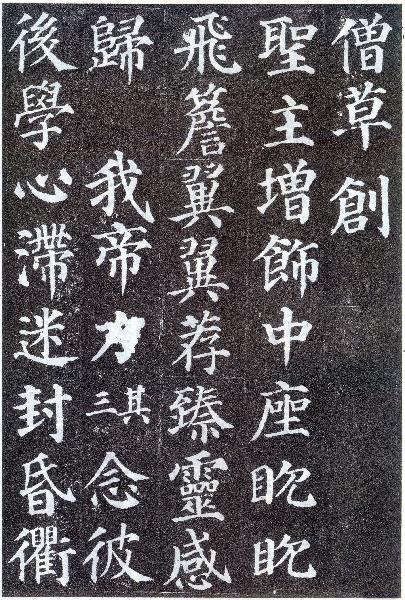 僧草創
聖主增飾中座眈眈
飛簷翼翼荐臻靈感
歸 我帝力其三念彼
後學心滯迷封昏衢